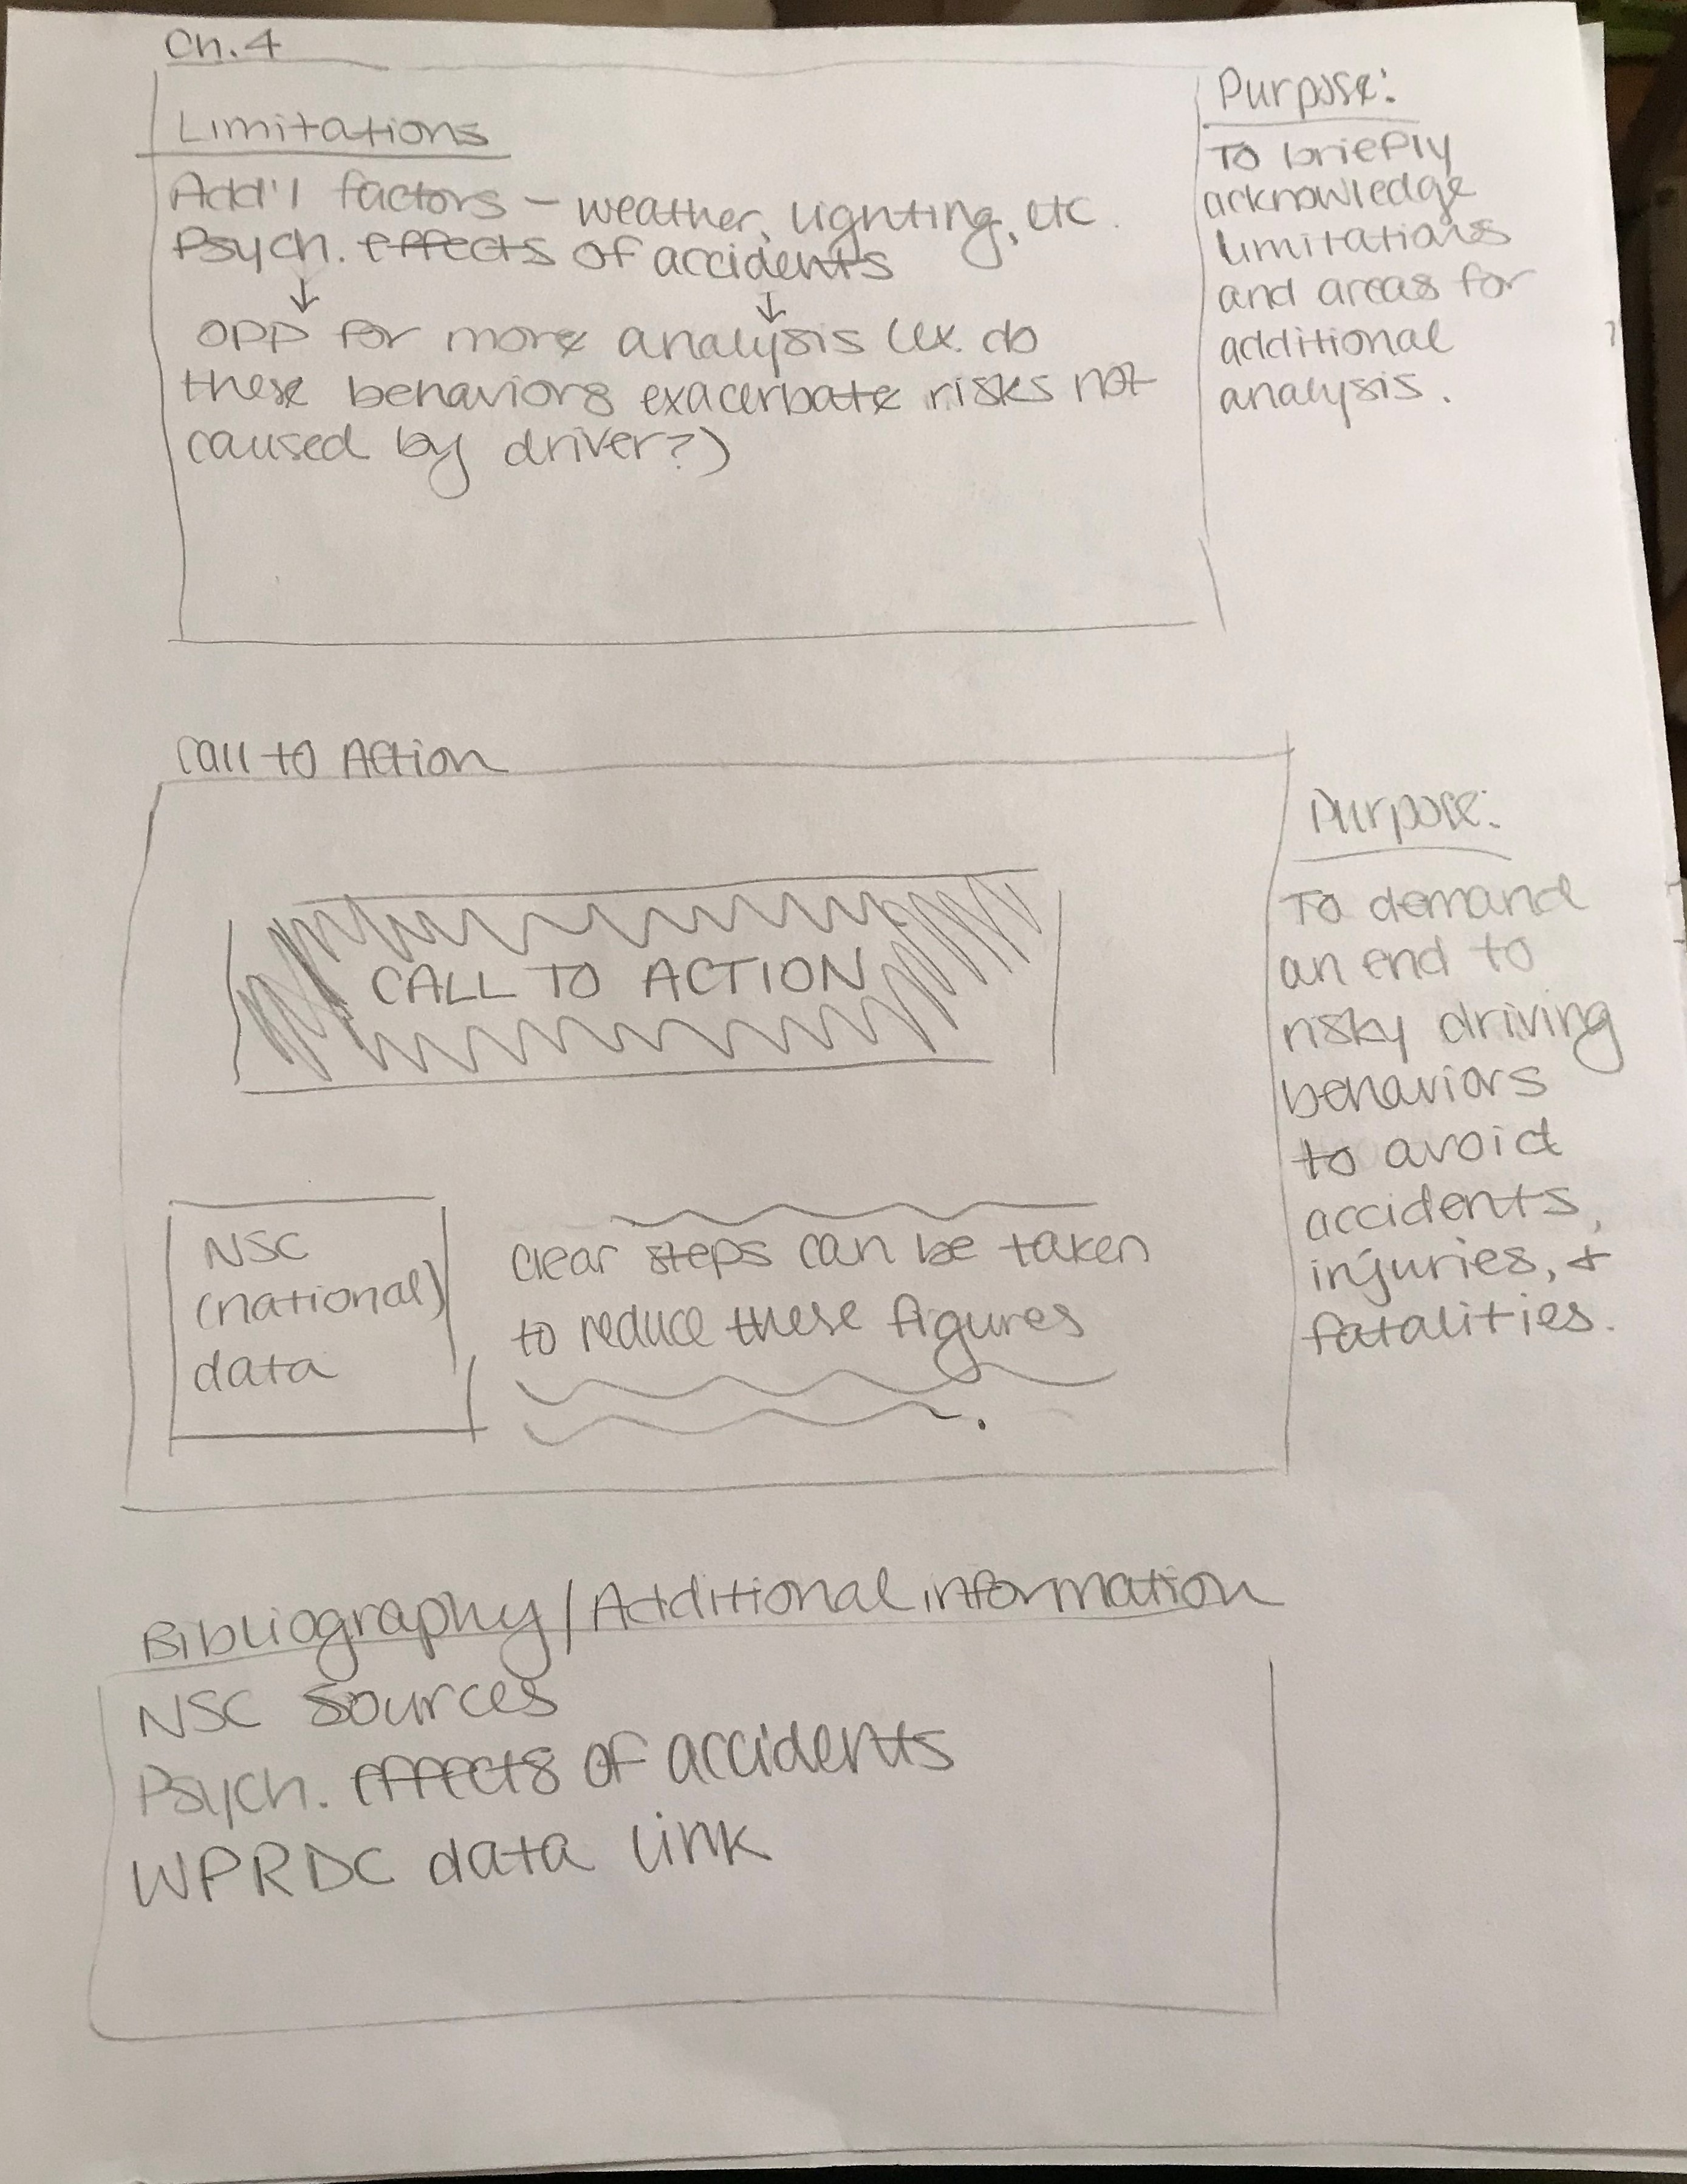 Ch.4
Limitations
Add'l factors – weather, lighting, etc.
Psych. effects of accidents
↓ ↓
opp for more analysis (ex. do
these behaviors exacerbate risks not
caused by driver?)
Purpose:
To briefly
acknowledge
limitations
and areas for
additional
analysis.
Call to Action
CALL TO ACTION
NSC
(national)
data
clear steps can be taken
to reduce these figures
Purpose:
To demand
an end to
risky driving
behaviors
to avoid
accidents,
injuries, +
fatalities.
Bibliography/Additional information
NSC sources
Psych. effects of accidents
WPRDC data link